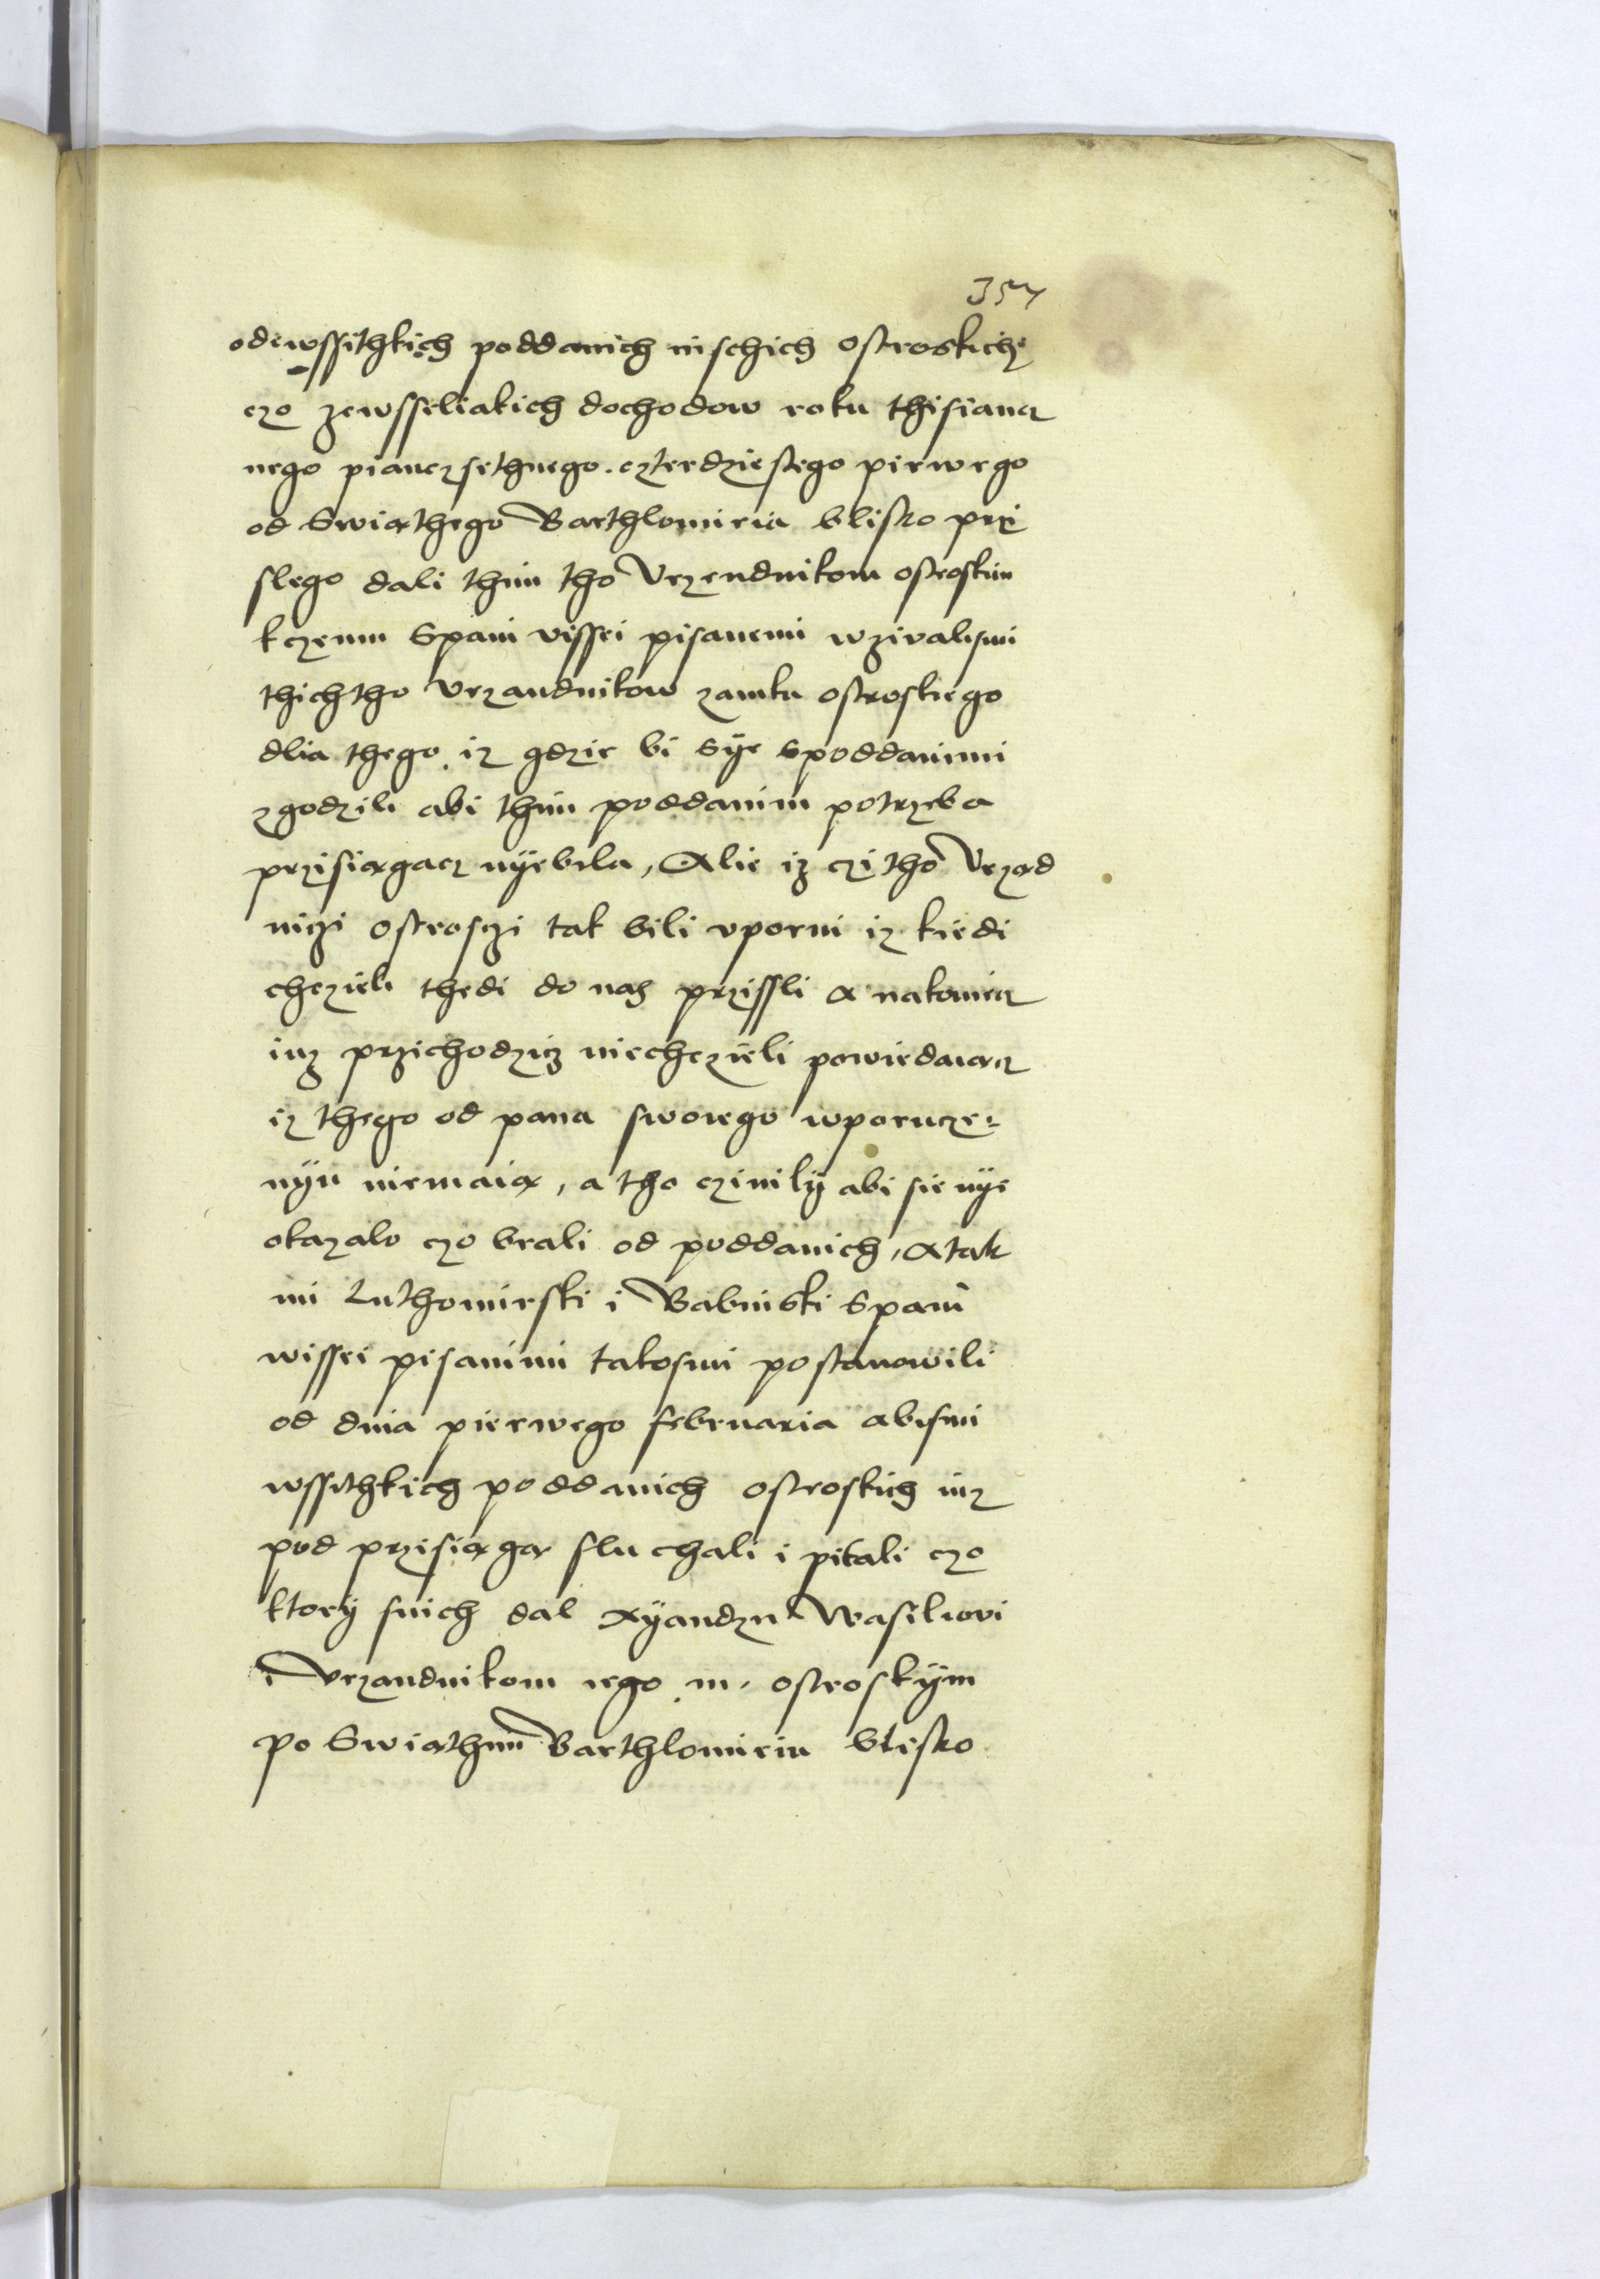 odewssithkich poddanich nischich ostroskich
czo zewsseliakich dochodow roku thisiancz
nego pianczsethnego czterdziestego pierwego
od Swiąthego Barthlomieia blisko przi
slego dali thim tho Vrzendnikom ostroskim
kczemu Spani vissei pisanemi wzivalismi
thich tho Vrzandnikow zamku ostroskiego
dlia thego iz gdzie bi Sye Spoddanimi
zgodzili abi thim poddanim potrzeba
przisiągacz nyebila, Alie iz czi tho Vrząd
niczi ostrosczi tak bili vporni iz kiedi
chczieli thedi do nas przissli a nakoniecz
iuz przichodzicz niechczieli powiedaiącz
iz thego od pana swoiego wporucze⸗
nyu niemaią, a tho czinily abi sie nye
okazalo czo brali od poddanich, A tak
mi Luthomirski i Babinski Spani
wissei pisanimi takosmi postanowili
od dnia pierwego februaria abismi
wssithkich poddanich ostroskich iuz
pod przisięgą sluchali i pitali czo
ktory snich dal Xyandzu Wasiliovi
i Vrzandnikom iego m. ostroskym
po Swiąthim Barthlomieiu blisko